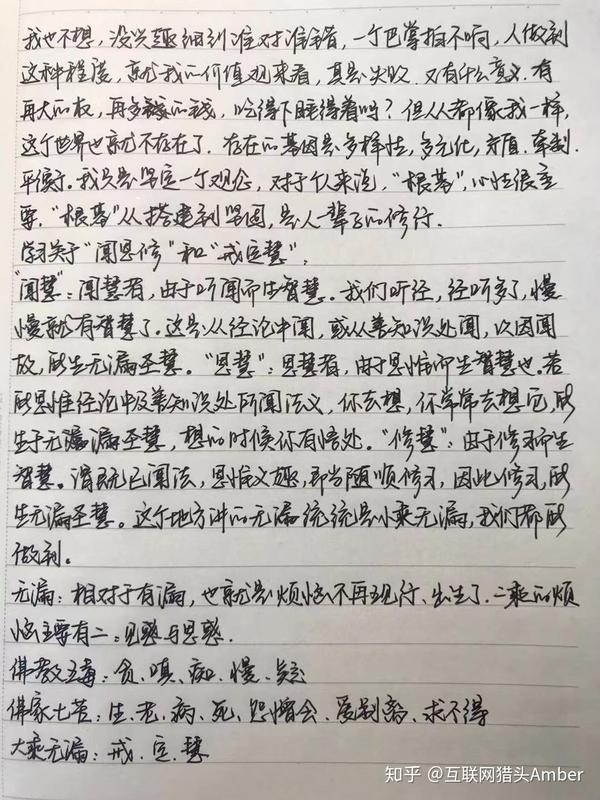 我也不想，没兴趣细纠谁对谁错，一个巴掌拍不响，人做到
这种程度，就我的价值观来看，真是失败，又有什么意义。有
再大的权，再多的钱，吃得下睡得着吗？但人人都像我一样，
这个世界也就不存在了。存在的基因是多样性，多元化，矛盾、牵制、
平衡。我只是坚定一个观念，对于个人来说，“根基”，心性很重
要。“根基”从搭建到坚固，是人一辈子的修行。
学习关于“闻思修”和“戒定慧”。
“闻慧”：闻慧者，由于听闻而生智慧。我们听经，经听多了，慢
慢就有智慧了。这是从经论中闻，或从善知识处闻，以因闻
故，能生无漏圣慧。“思慧”：思慧者，由于思惟而生智慧也。若
能思惟经论中及善知识处所闻法义，你去想，你常常去想它，能
生于无漏圣慧，想的时候你有悟处。“修慧”：由于修习而生
智慧。谓既已闻法，思惟义趣，即当随顺修习，因此修习，能
生无漏圣慧。这个地方讲的无漏统统是小乘无漏，我们都能
做到。
无漏：相对于有漏，也就是烦恼不再现行、出生了。二乘的烦
恼主要有二：见惑与思惑。
佛教五毒：贪、嗔、痴、慢、疑
佛家七苦：生、老、病、死、怨憎会、爱别离、求不得
大乘无漏：戒、定、慧
知乎 @互联网猎头Amber